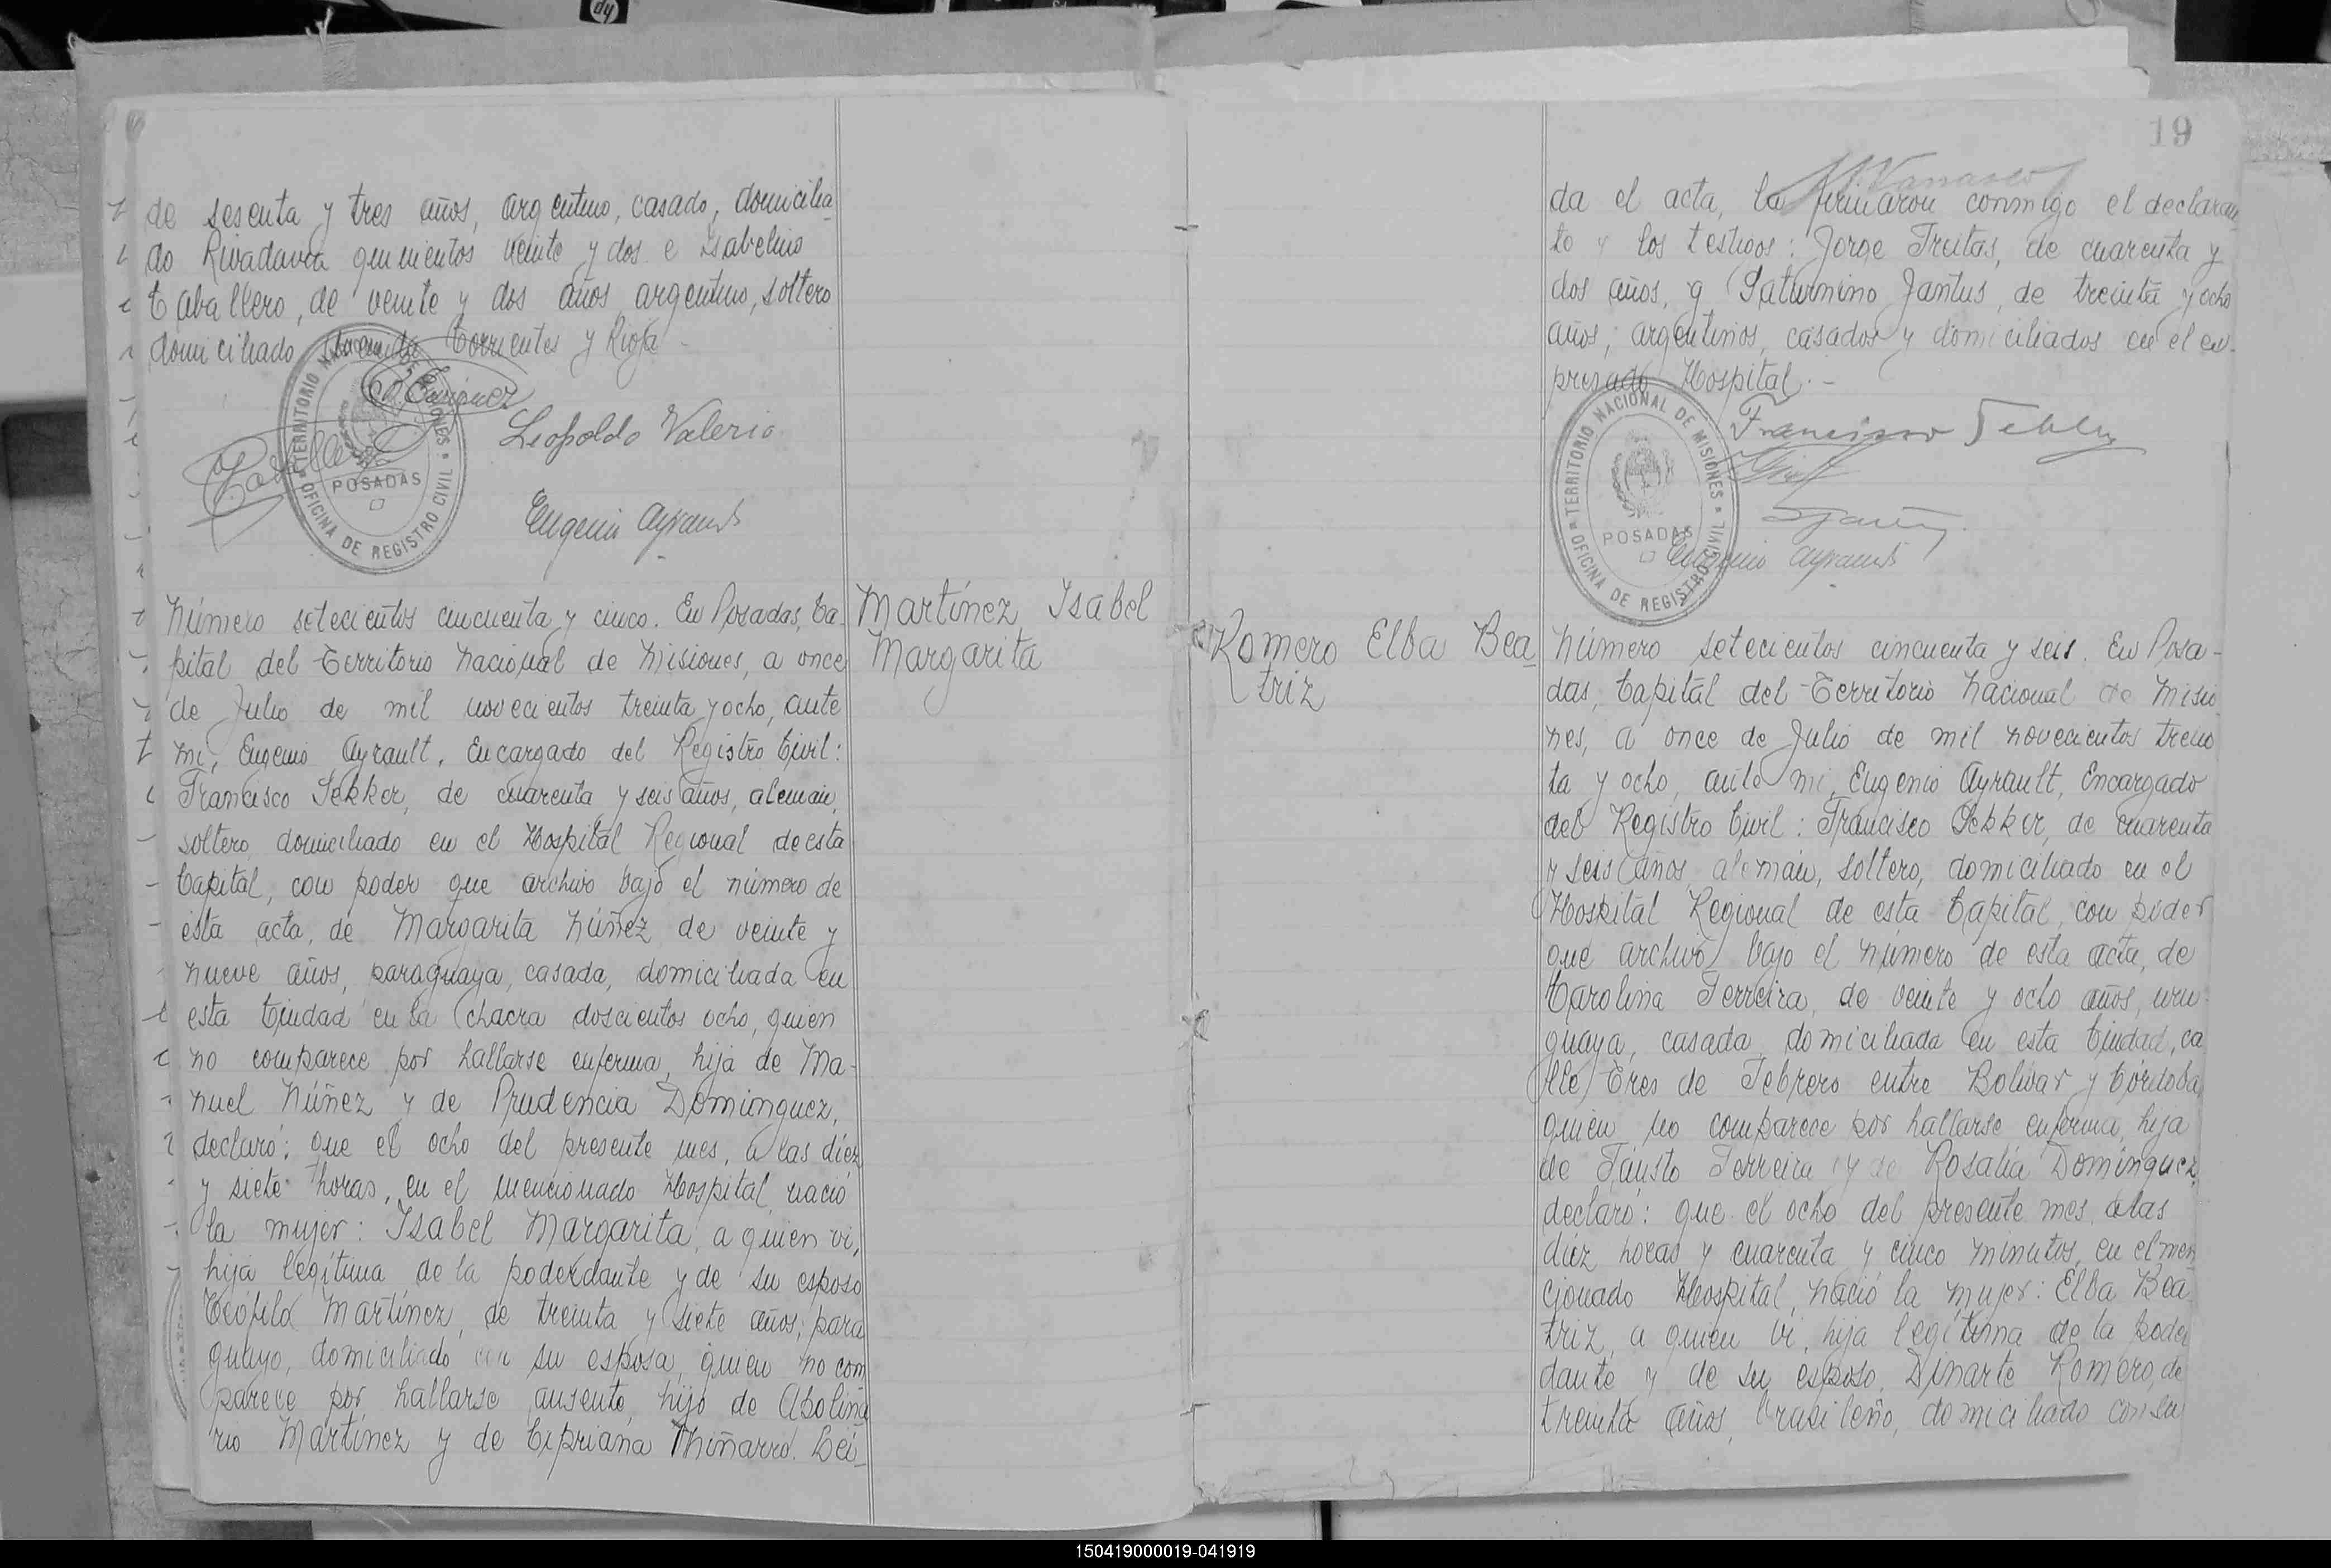 de sesenta y tres años, argentino, casado, domicilia
do Rivadavia quinientos veinte y dos e Isabelino
Caballero, de veinte y dos años, argentino, soltero
domiciliado Corrientes y Rioja
TERRITORIO NACIONAL DE MISIONES
POSADAS
OFICINA DE REGISTRO CIVIL
Leopoldo Valerio
Eugenio Ayrault
Número setecientos cincuenta y cinco. En Posadas, Ca-
pital del Territorio Nacional de Misiones, a once
de Julio de mil novecientos treinta y ocho, ante
mi, Eugenio Ayrault, Encargado del Registro Civil:
Francisco Fekker, de cuarenta y seis años, aleman,
soltero, domiciliado en el Hospital Regional de esta
Capital, con poder que archivo bajo el número de
esta acta, de Margarita Núñez de veinte y
nueve años, paraguaya, casada, domiciliada en
esta Ciudad en la chacra doscientos ocho, quien
no comparece por hallarse enferma, hija de Ma-
nuel Núñez y de Prudencia Dominguez,
declaró: que el ocho del presente mes, a las diez
y siete horas, en el mencionado Hospital nació
la mujer: Isabel Margarita, a quien vi,
hija legítima de la poderdante y de su esposo
Teófilo Martínez, de treinta y siete años, para
guayo, domiciliado con su esposa, quien no com
parece por hallarse ausente, hijo de Apolina
rio Martínez y de Cipriana Miñarro. Leí-
Martínez Isabel
Margarita
19
da el acta, la firmaron conmigo el declaran
te y los testigos: Jorge Freitas, de cuarenta y
dos años, y Saturnino Jantus, de treinta y ocho
años; argentinos, casados y domiciliados en el ex-
presado Hospital.-
TERRITORIO NACIONAL DE MISIONES
POSADAS
OFICINA DE REGISTRO CIVIL
Francisco
Eugenio Ayrault
Romero Elba Bea
triz
Número setecientos cincuenta y seis. En Posa-
das, Capital del Territorio Nacional de Misio
nes, a once de Julio de mil novecientos trein
ta y ocho, ante mi, Eugenio Ayrault, Encargado
del Registro Civil: Francisco Fekker, de cuarenta
y seis años, alemán, soltero, domiciliado en el
Hospital Regional de esta Capital, con poder
que archivo bajo el número de esta acta, de
Carolina Ferreira, de veinte y ocho años, uru
guaya, casada, domiciliada en esta Ciudad, ca
lle Tres de Febrero entre Bolivar y Córdoba,
quien no comparece por hallarse enferma, hija
de Fausto Ferreira y de Rosalía Dominguez,
declaró: que el ocho del presente mes, a las
diez horas y cuarenta y cinco minutos, en el men
cionado Hospital, nació la mujer: Elba Bea
triz, a quien vi, hija legítima de la poder
dante y de su esposo, Dinarte Romero, de
treinta años, brasileño, domiciliado con su
150419000019-041919